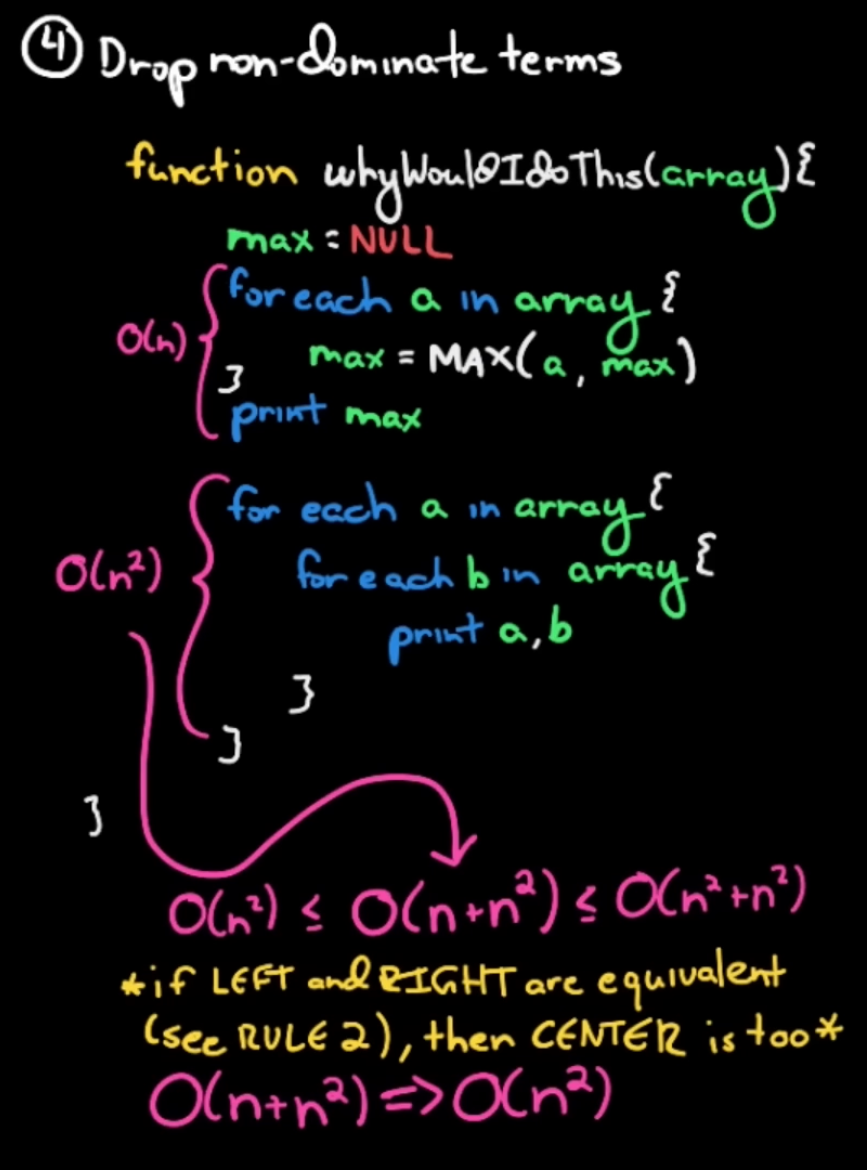 4 Drop non-dominate terms
function whyWouldIdoThis(array){
max = NULL
for each a in array {
O(n)
max = MAX(a, max)
}
print max
for each a in array {
O(n²)
for each b in array {
print a, b
}
}
}
O(n²) ≤ O(n+n²) ≤ O(n²+n²)
*if LEFT and RIGHT are equivalent
(see RULE 2), then CENTER is too*
O(n+n²) => O(n²)